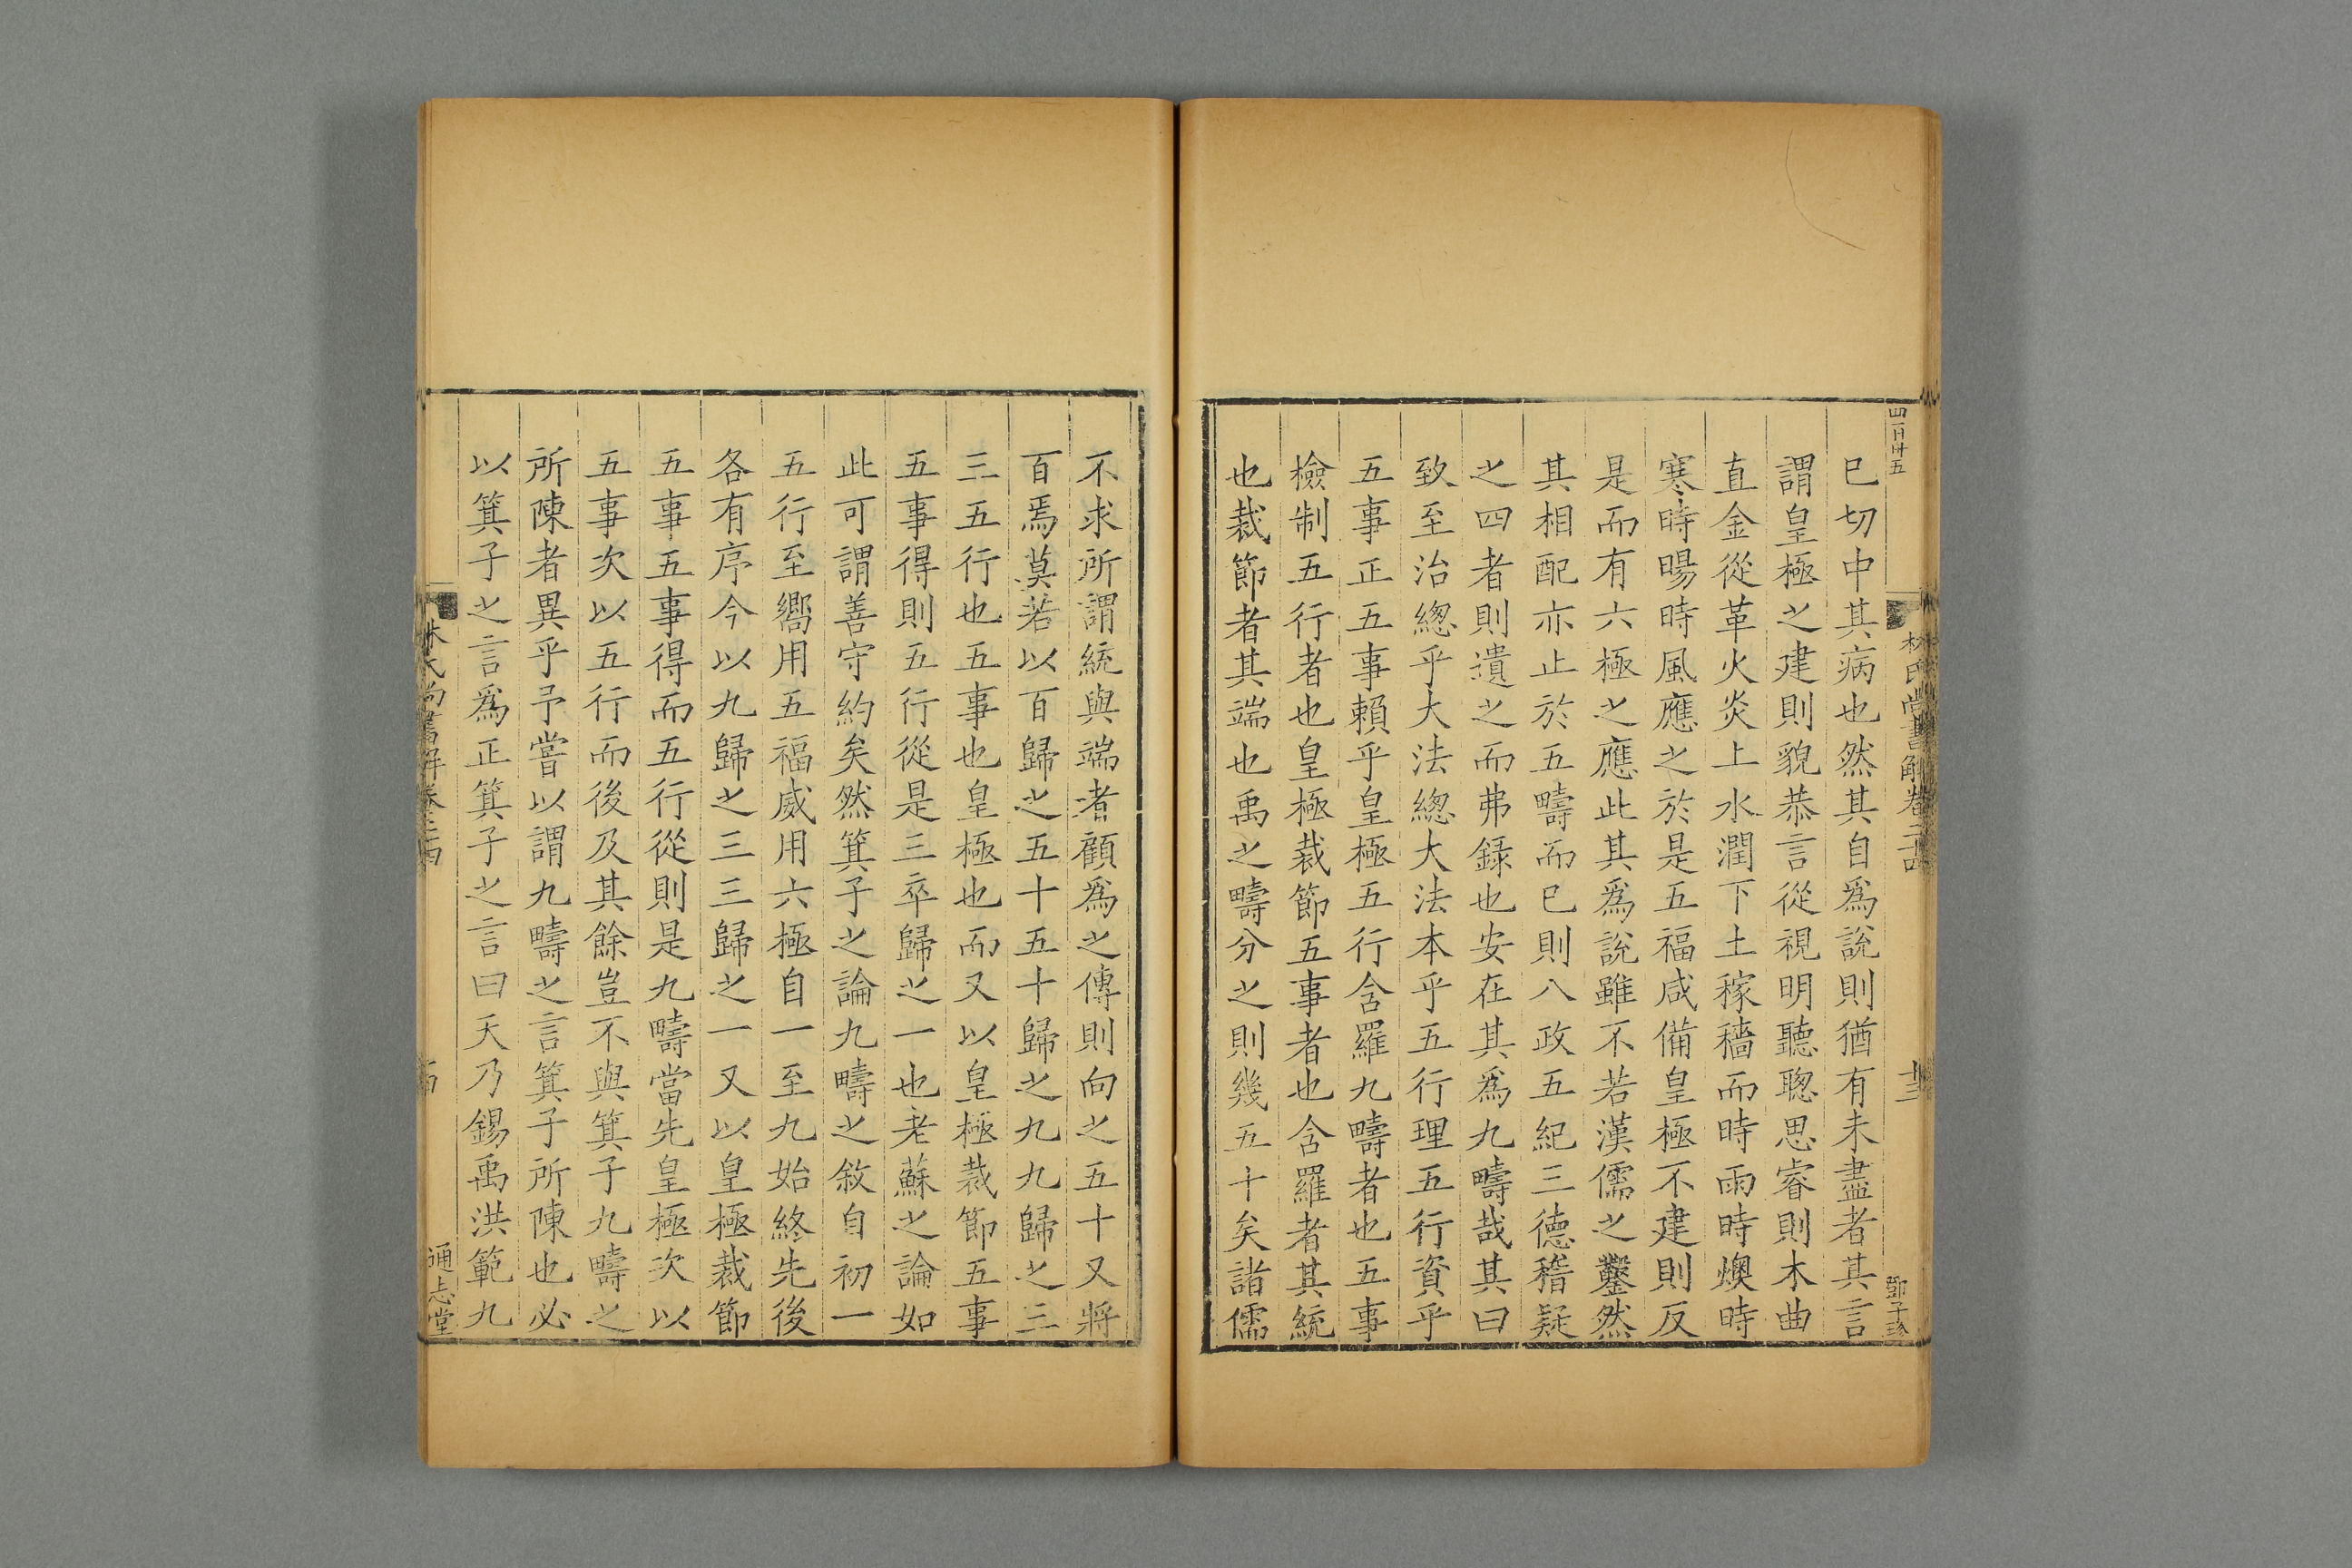 四百卅五
林氏尚書解卷二十四
十三
鄧子珍
已切中其病也然其自爲說則猶有未盡者其言
謂皇極之建則貌恭言從視明聽聰思睿則木曲
直金從革火炎上水潤下土稼穡而時雨時燠時
寒時暘時風應之於是五福咸備皇極不建則反
是而有六極之應此其爲說雖不若漢儒之鑿然
其相配亦止於五疇而已則八政五紀三德稽疑
之四者則遺之而弗録也安在其爲九疇哉其曰
致至治緫乎大法緫大法本乎五行理五行資乎
五事正五事賴乎皇極五行含羅九疇者也五事
檢制五行者也皇極裁節五事者也含羅者其統
也裁節者其端也禹之疇分之則幾五十矣諸儒
不求所謂統與端者顧爲之傳則向之五十又將
百焉莫若以百歸之五十五十歸之九九歸之三
三五行也五事也皇極也而又以皇極裁節五事
五事得則五行從是三卒歸之一也老蘇之論如
此可謂善守約矣然箕子之論九疇之敘自初一
五行至嚮用五福威用六極自一至九始終先後
各有序今以九歸之三三歸之一又以皇極裁節
五事五事得而五行從則是九疇當先皇極次以
五事次以五行而後及其餘豈不與箕子九疇之
所陳者異乎予嘗以謂九疇之言箕子所陳也必
以箕子之言爲正箕子之言曰天乃錫禹洪範九
林氏尚書解卷二十四
通志堂